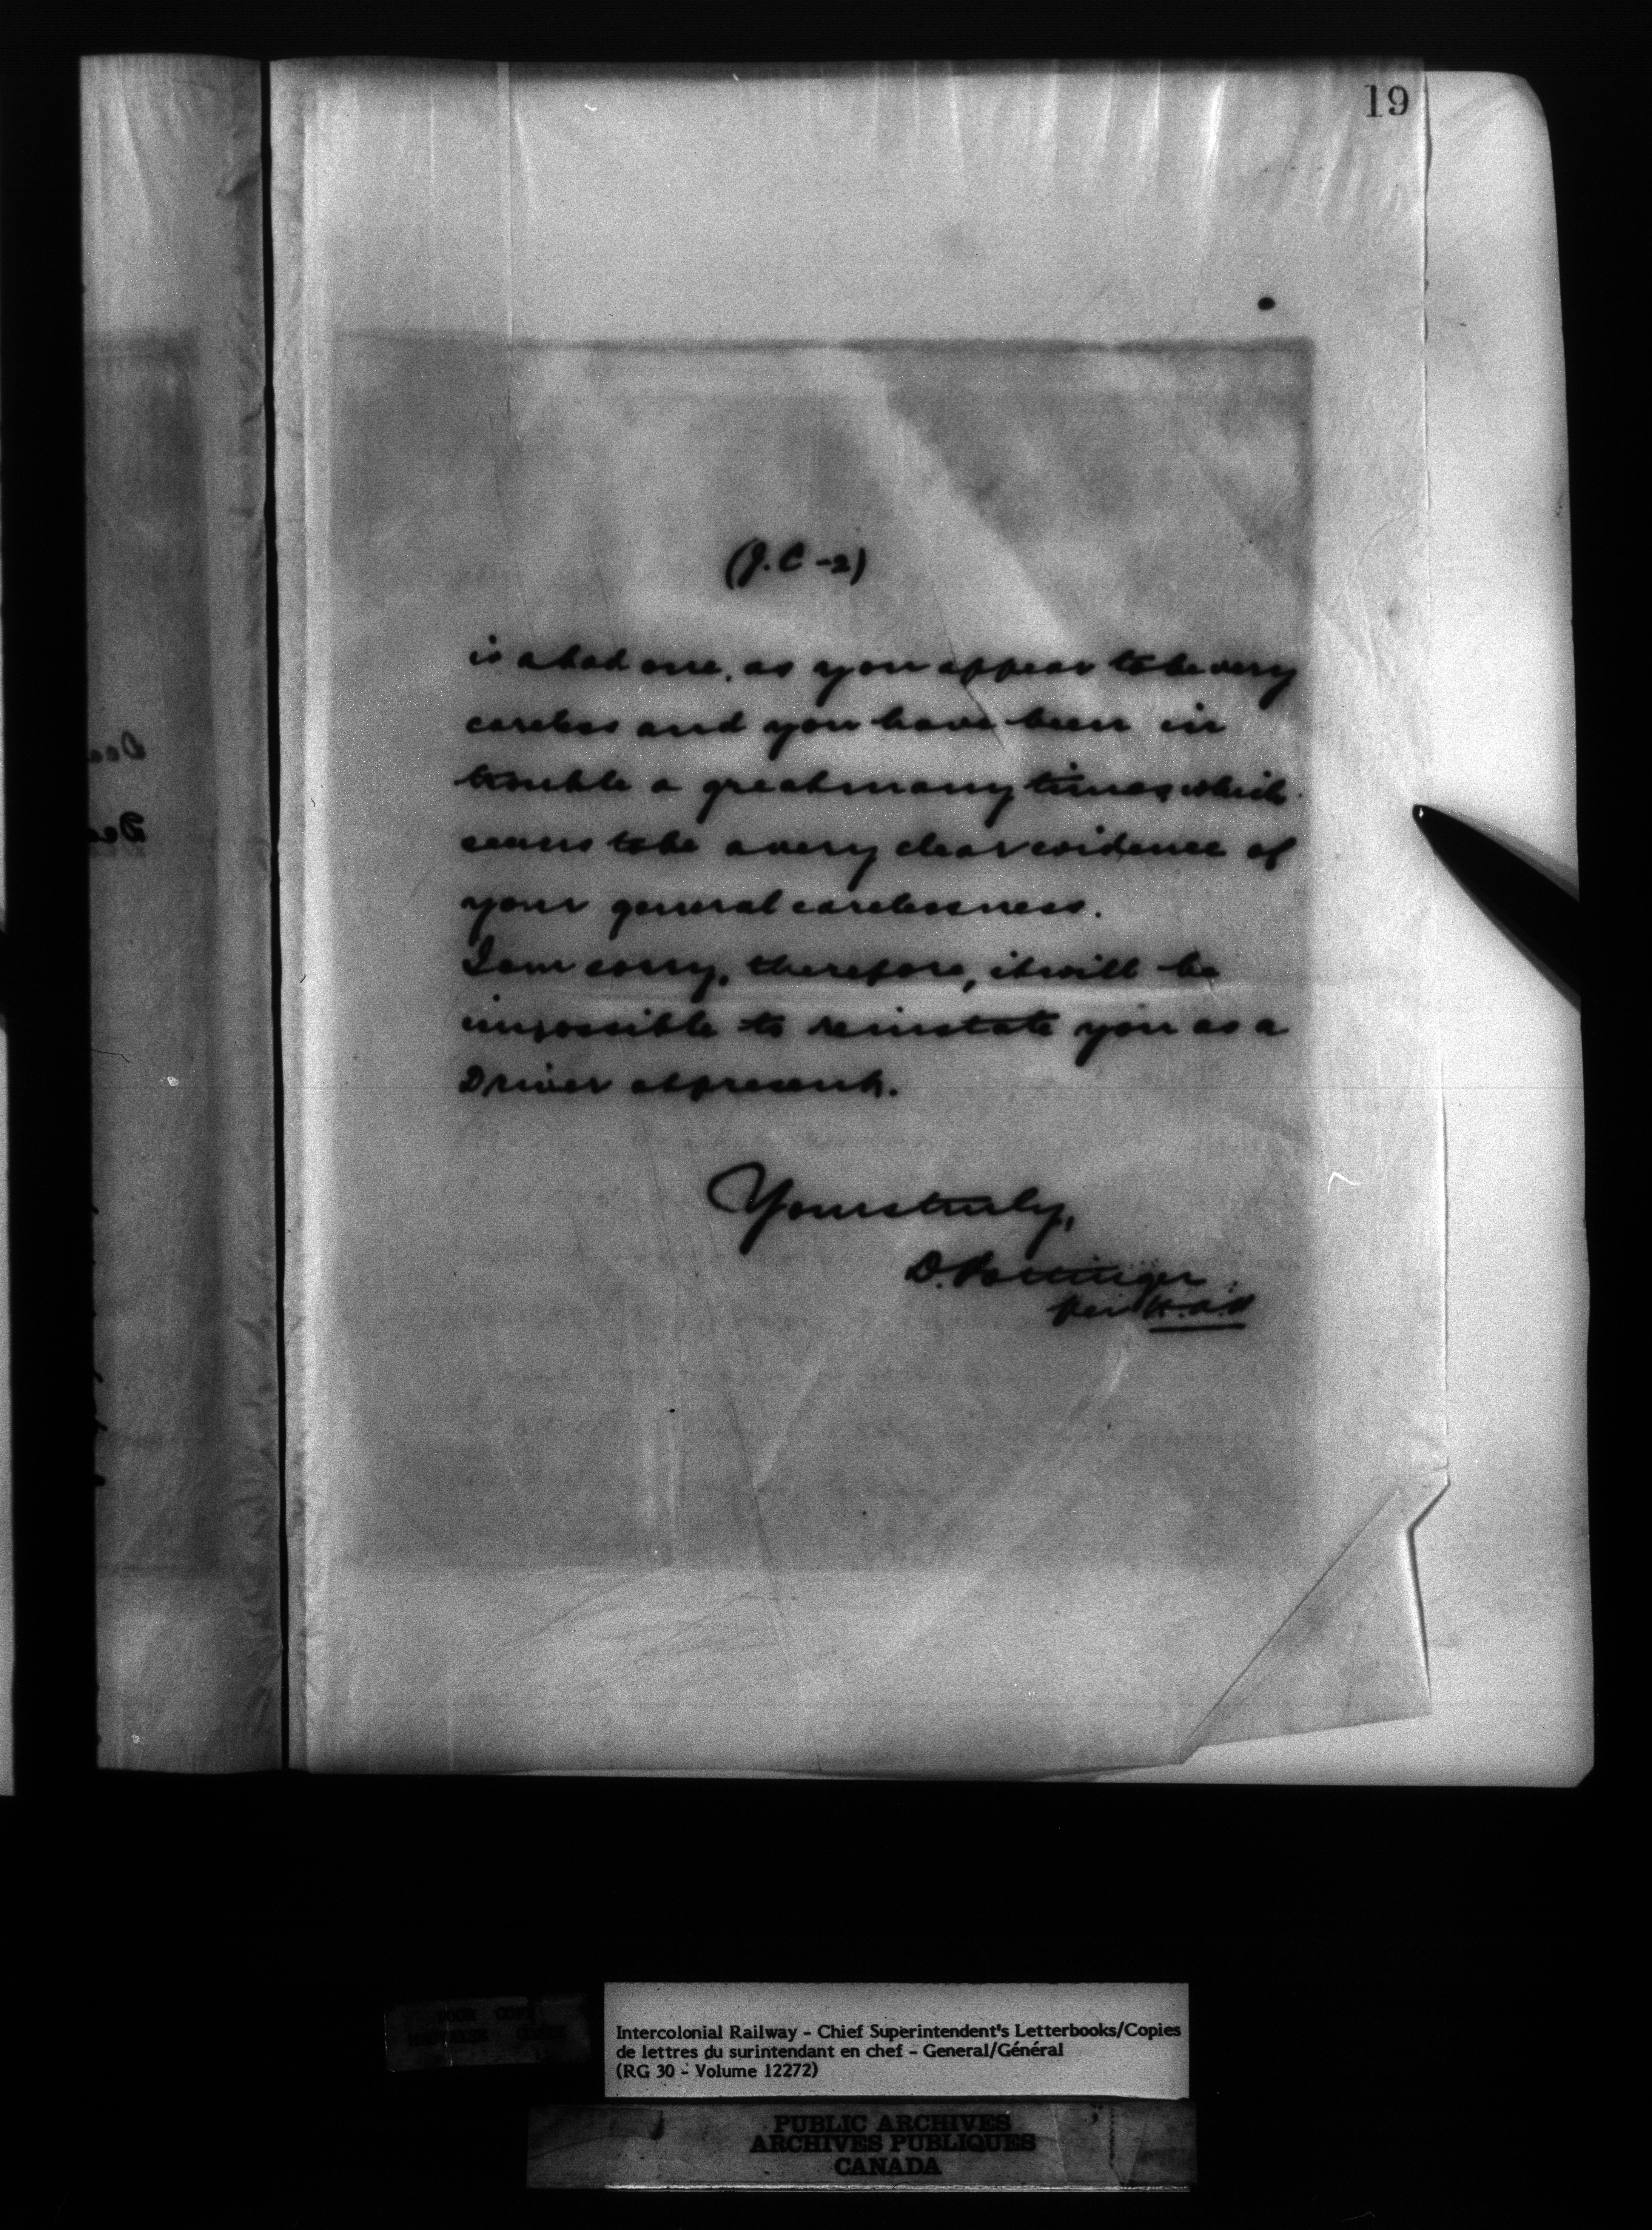 19
(J.C-2)
is a bad one, as you appear to be very
careless and you have been in
trouble a great many times, which
seems to be a very clear evidence of
your general carelessness.
I am sorry, therefore, it will be
impossible to reinstate you as a
Driver at present.
Yours truly,
D. Pottinger
per
POOR COPY
Intercolonial Railway - Chief Superintendent's Letterbooks/Copies
de lettres du surintendant en chef - General/Général
(RG 30 - Volume 12272)
PUBLIC ARCHIVES
ARCHIVES PUBLIQUES
CANADA